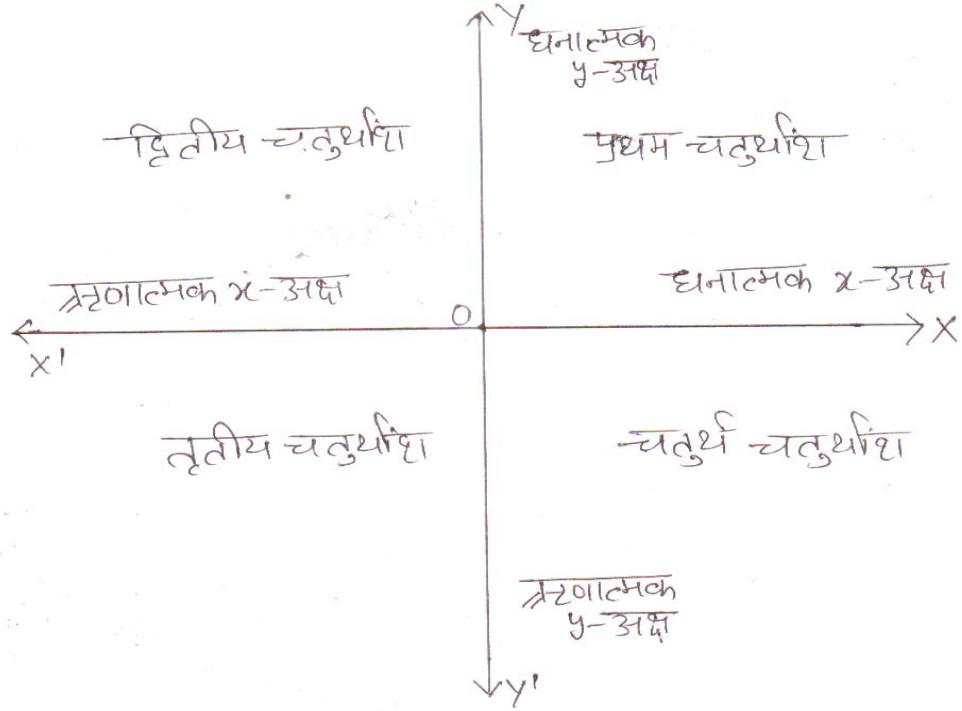 Y
धनात्मक
y-अक्ष
द्वितीय चतुर्थांश
प्रथम चतुर्थांश
ऋणात्मक x-अक्ष
धनात्मक x-अक्ष
O
X'
X
तृतीय चतुर्थांश
चतुर्थ चतुर्थांश
ऋणात्मक
y-अक्ष
Y'